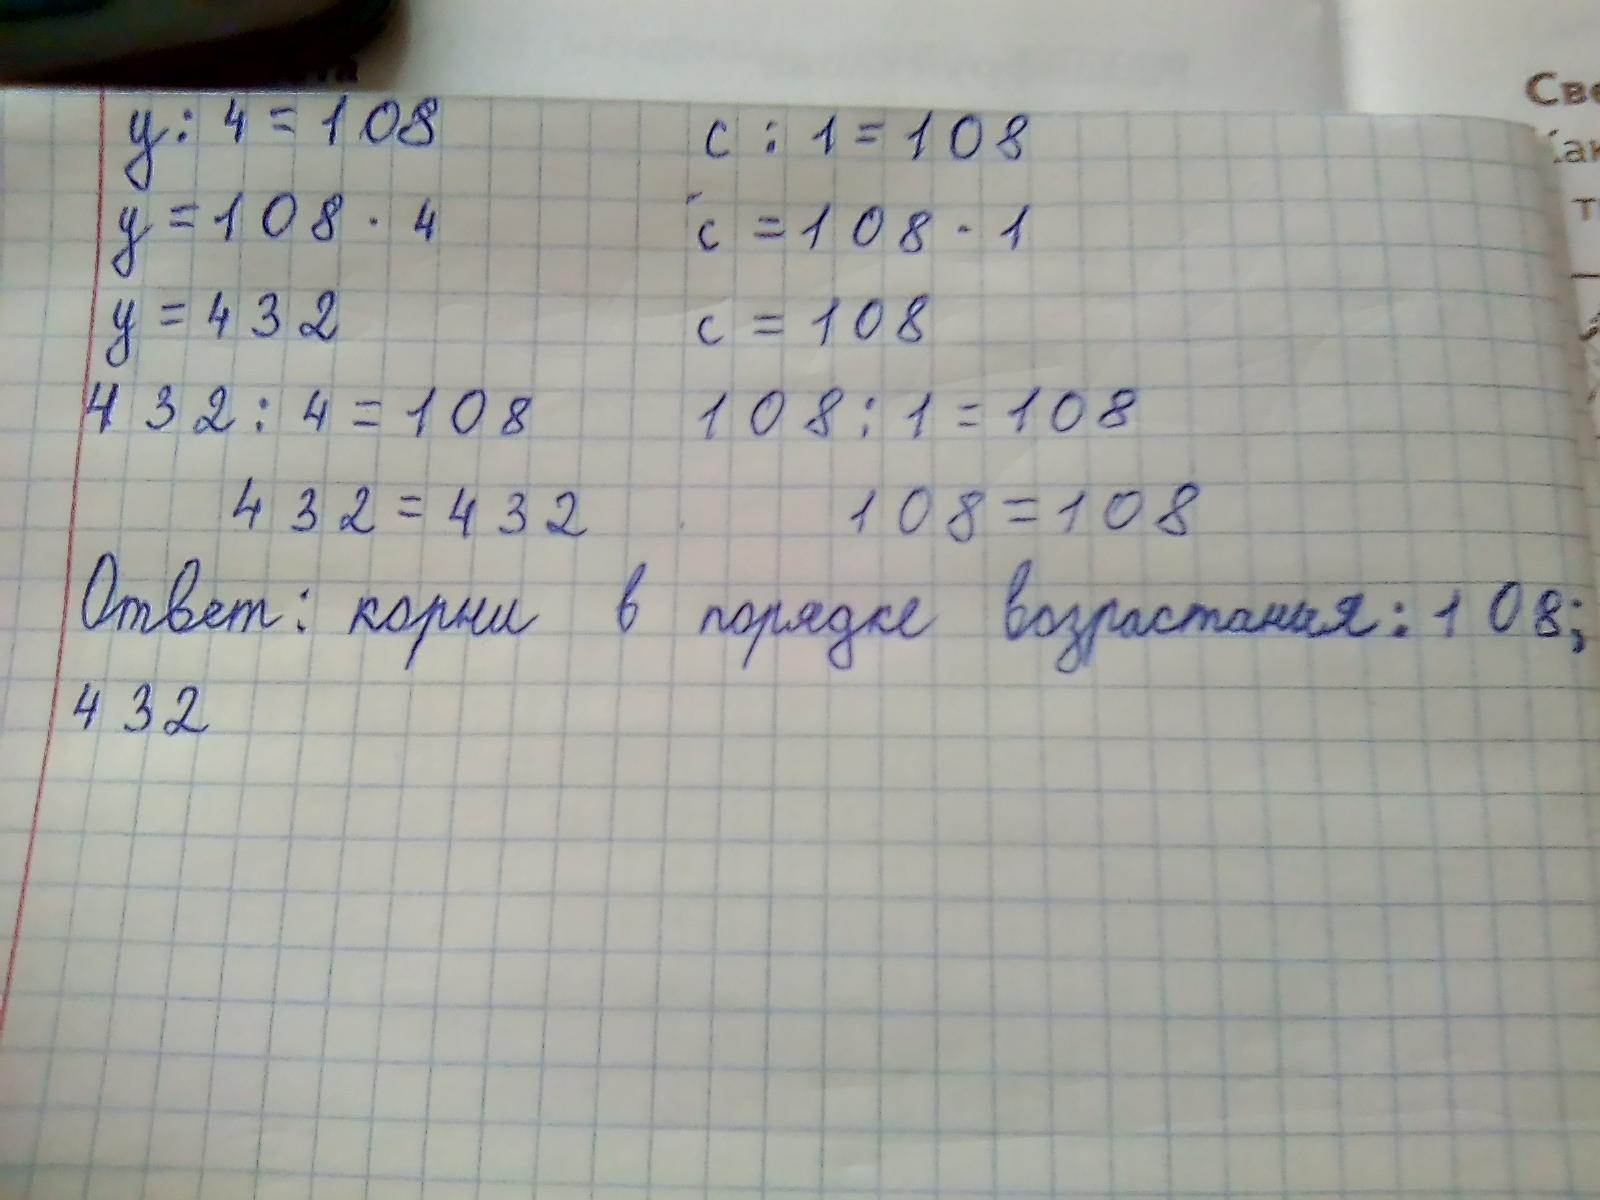 та
Све
Как
y : 4 = 108 c : 1 = 108
y = 108 · 4 c = 108 · 1
y = 432 c = 108
432 : 4 = 108 108 : 1 = 108
432 = 432 108 = 108
Ответ: корни в порядке возрастания: 108;
432